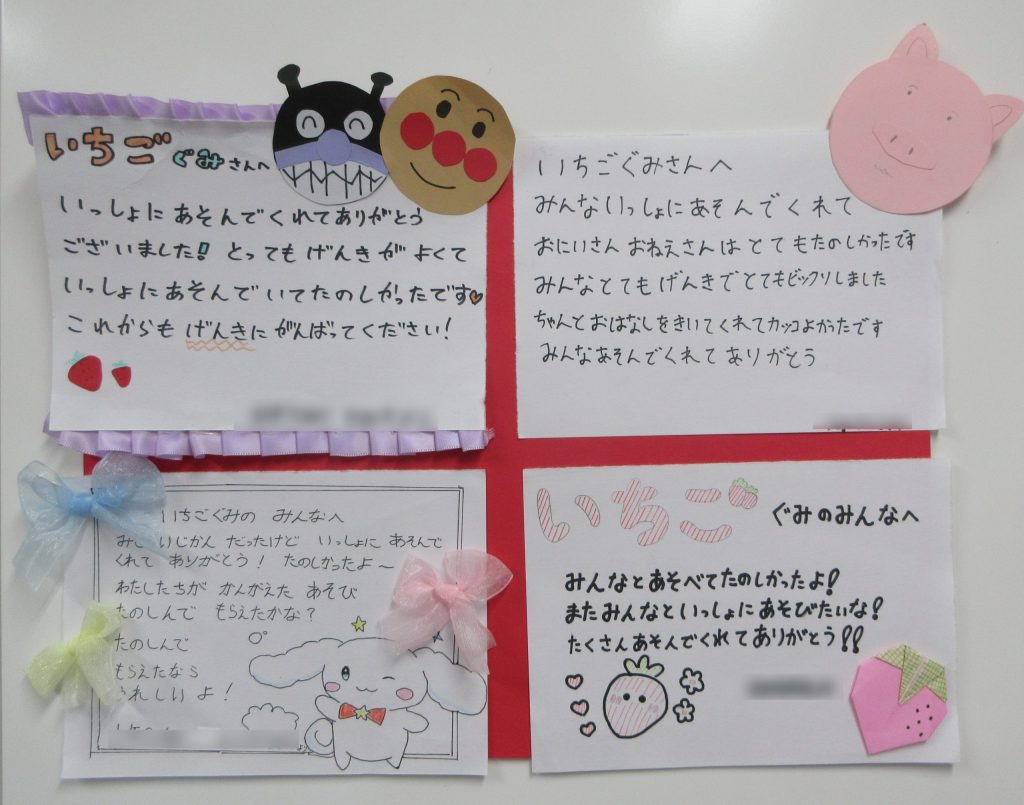 いちごぐみさんへ
いっしょにあそんでくれてありがとう
ございました! とってもげんきがよくて
いっしょにあそんでいてたのしかったです♥
これからもげんきにがんばってください!
いちごぐみさんへ
みんないっしょにあそんでくれて
おにいさんおねえさんはとてもたのしかったです
みんなとてもげんきでとてもビックリしました
ちゃんとおはなしをきいてくれてカッコよかったです
みんなあそんでくれてありがとう
いちごぐみの みんなへ
いじかん だったけど いっしょに あそんで
くれて ありがとう! たのしかったよ~
わたしたちが かんがえた あそび
たのしんで もらえたかな?
たのしんで
もらえたなら
うれしいよ!
いちごぐみのみんなへ
みんなとあそべてたのしかったよ!
またみんなといっしょにあそびたいな!
たくさんあそんでくれてありがとう!!